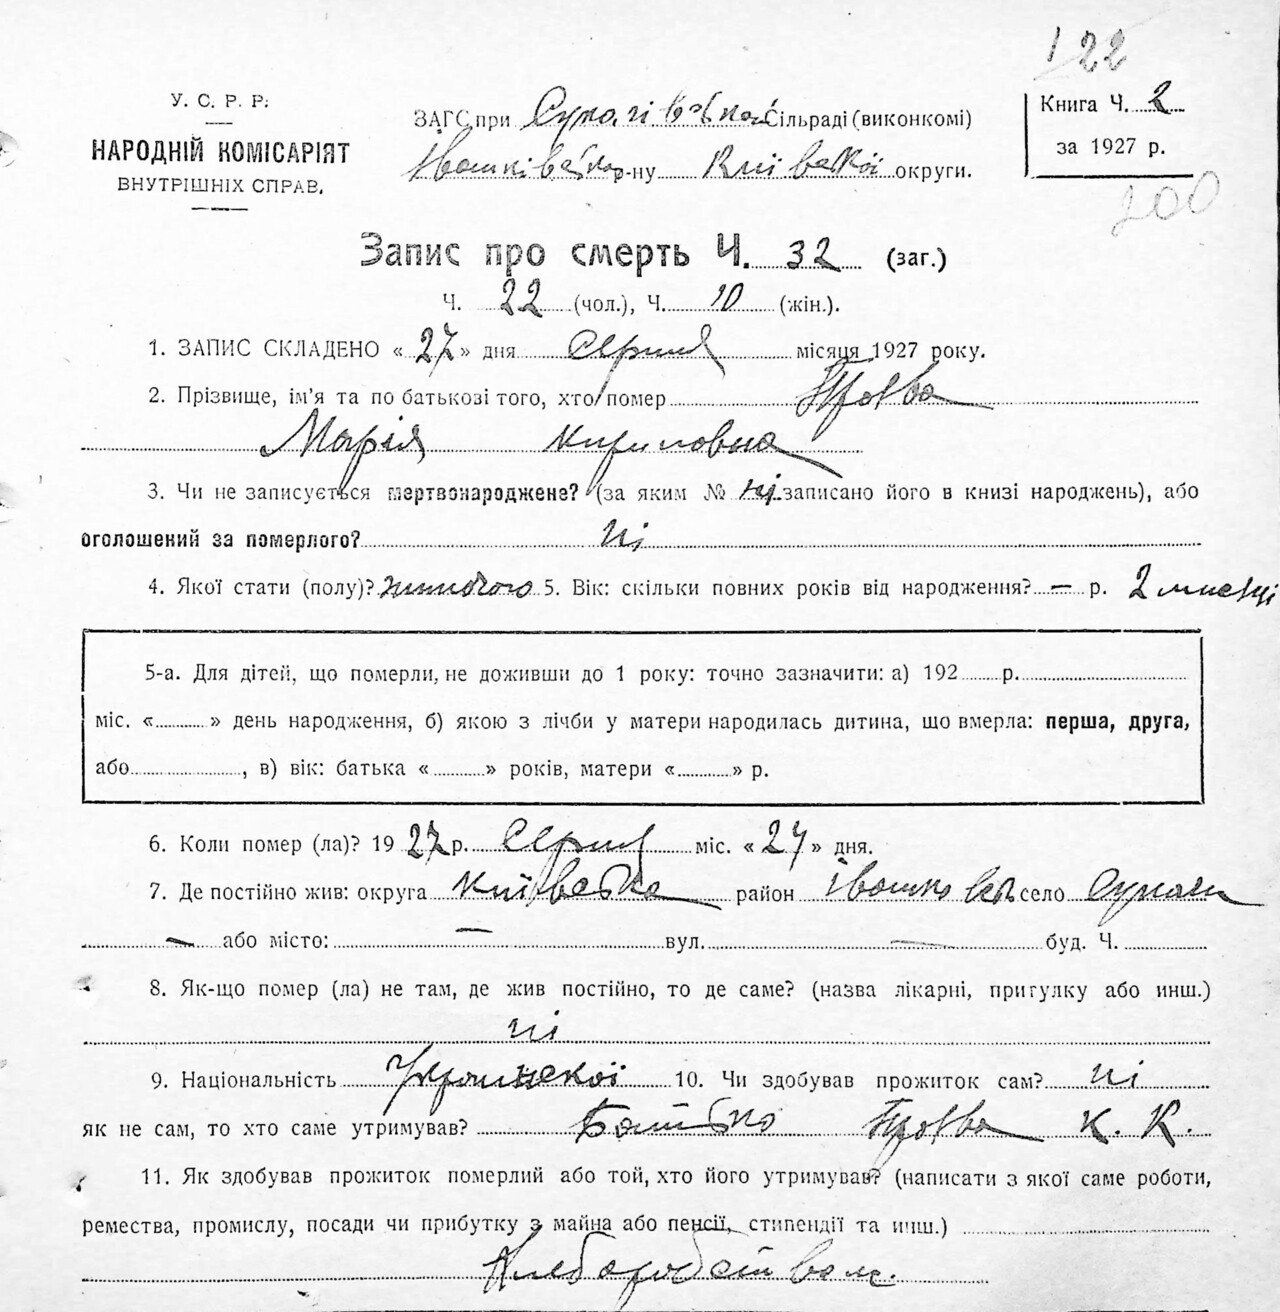 122
У. С. Р. Р.
НАРОДНІЙ КОМІСАРІЯТ
ВНУТРІШНІХ СПРАВ.
ЗАГС при Сукачівській Сільраді (виконкомі)
Івашківськ р-ну Київської округи.
Книга Ч. 2
за 1927 р.
200
Запис про смерть Ч. 32 (заг.)
Ч. 22 (чол.), Ч. 10 (жін.).
1. ЗАПИС СКЛАДЕНО « 27 » дня Серпня місяця 1927 року.
2. Прізвище, ім'я та по батькові того, хто помер
Марія Кириловна
3. Чи не записується мертвонароджене? (за яким № ні записано його в книзі народжень), або
оголошений за померлого? ні
4. Якої стати (полу)? жиночого 5. Вік: скільки повних років від народження? — р. 2 мисяці
5-а. Для дітей, що померли, не доживши до 1 року: точно зазначити: а) 192 р.
міс. « » день народження, б) якою з лічби у матери народилась дитина, що вмерла: перша, друга,
або , в) вік: батька « » років, матери « » р.
6. Коли помер (ла)? 1927 р. Серпня міс. « 27 » дня.
7. Де постійно жив: округа Київська район Івашковск село
— або місто: — вул. — буд. Ч.
8. Як-що помер (ла) не там, де жив постійно, то де саме? (назва лікарні, пригулку або инш.)
ні
9. Національність Украинскої 10. Чи здобував прожиток сам? ні
як не сам, то хто саме утримував? Батько К. К.
11. Як здобував прожиток померлий або той, хто його утримував? (написати з якої саме роботи,
ремества, промислу, посади чи прибутку з майна або пенсії, стипендії та инш.)
Хлеборобством.